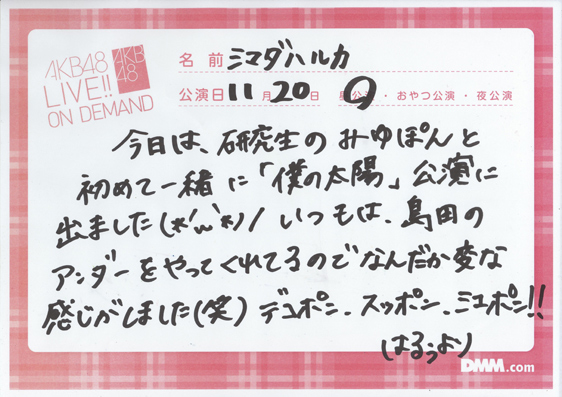 AKB48
LIVE!!
ON DEMAND
AKB
48
名前 シマダハルカ
公演日 11月20日 昼公演・おやつ公演・夜公演
今日は、研究生のみゆぽんと
初めて一緒に「僕の太陽」公演に
出ました(*'ω'*)ノ いつもは、島田の
アンダーをやってくれてるのでなんだか変な
感じがしました(笑) デコポン、スッポン、ミユポン!!
はるぅより
DMM.com